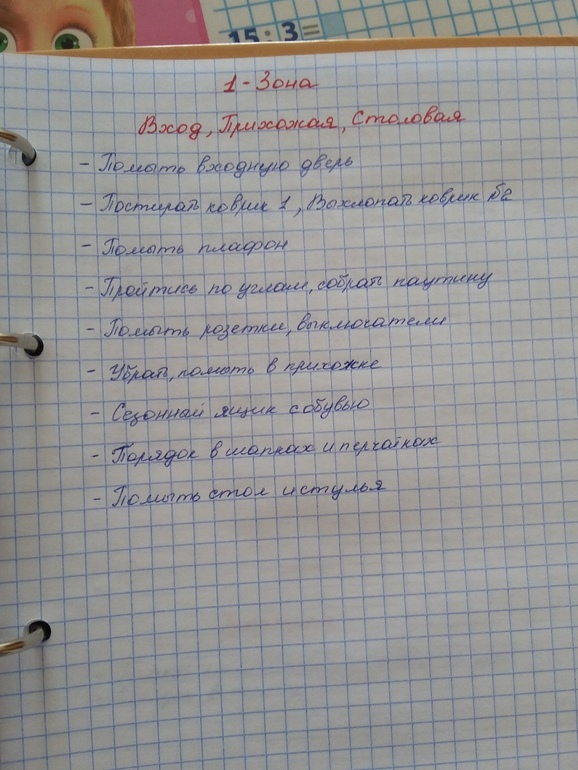 15:3=
1-Зона
Вход, Прихожая, Столовая
- Помыть входную дверь
- Постирать коврик 1, Выхлопать коврик №2
- Помыть плафон
- Пройтись по углам, собрать паутину
- Помыть розетки, выключатели
- Убрать, помыть в прихожке
- Сезонный ящик с обувью
- Порядок в шапках и перчатках
- Помыть стол и стулья